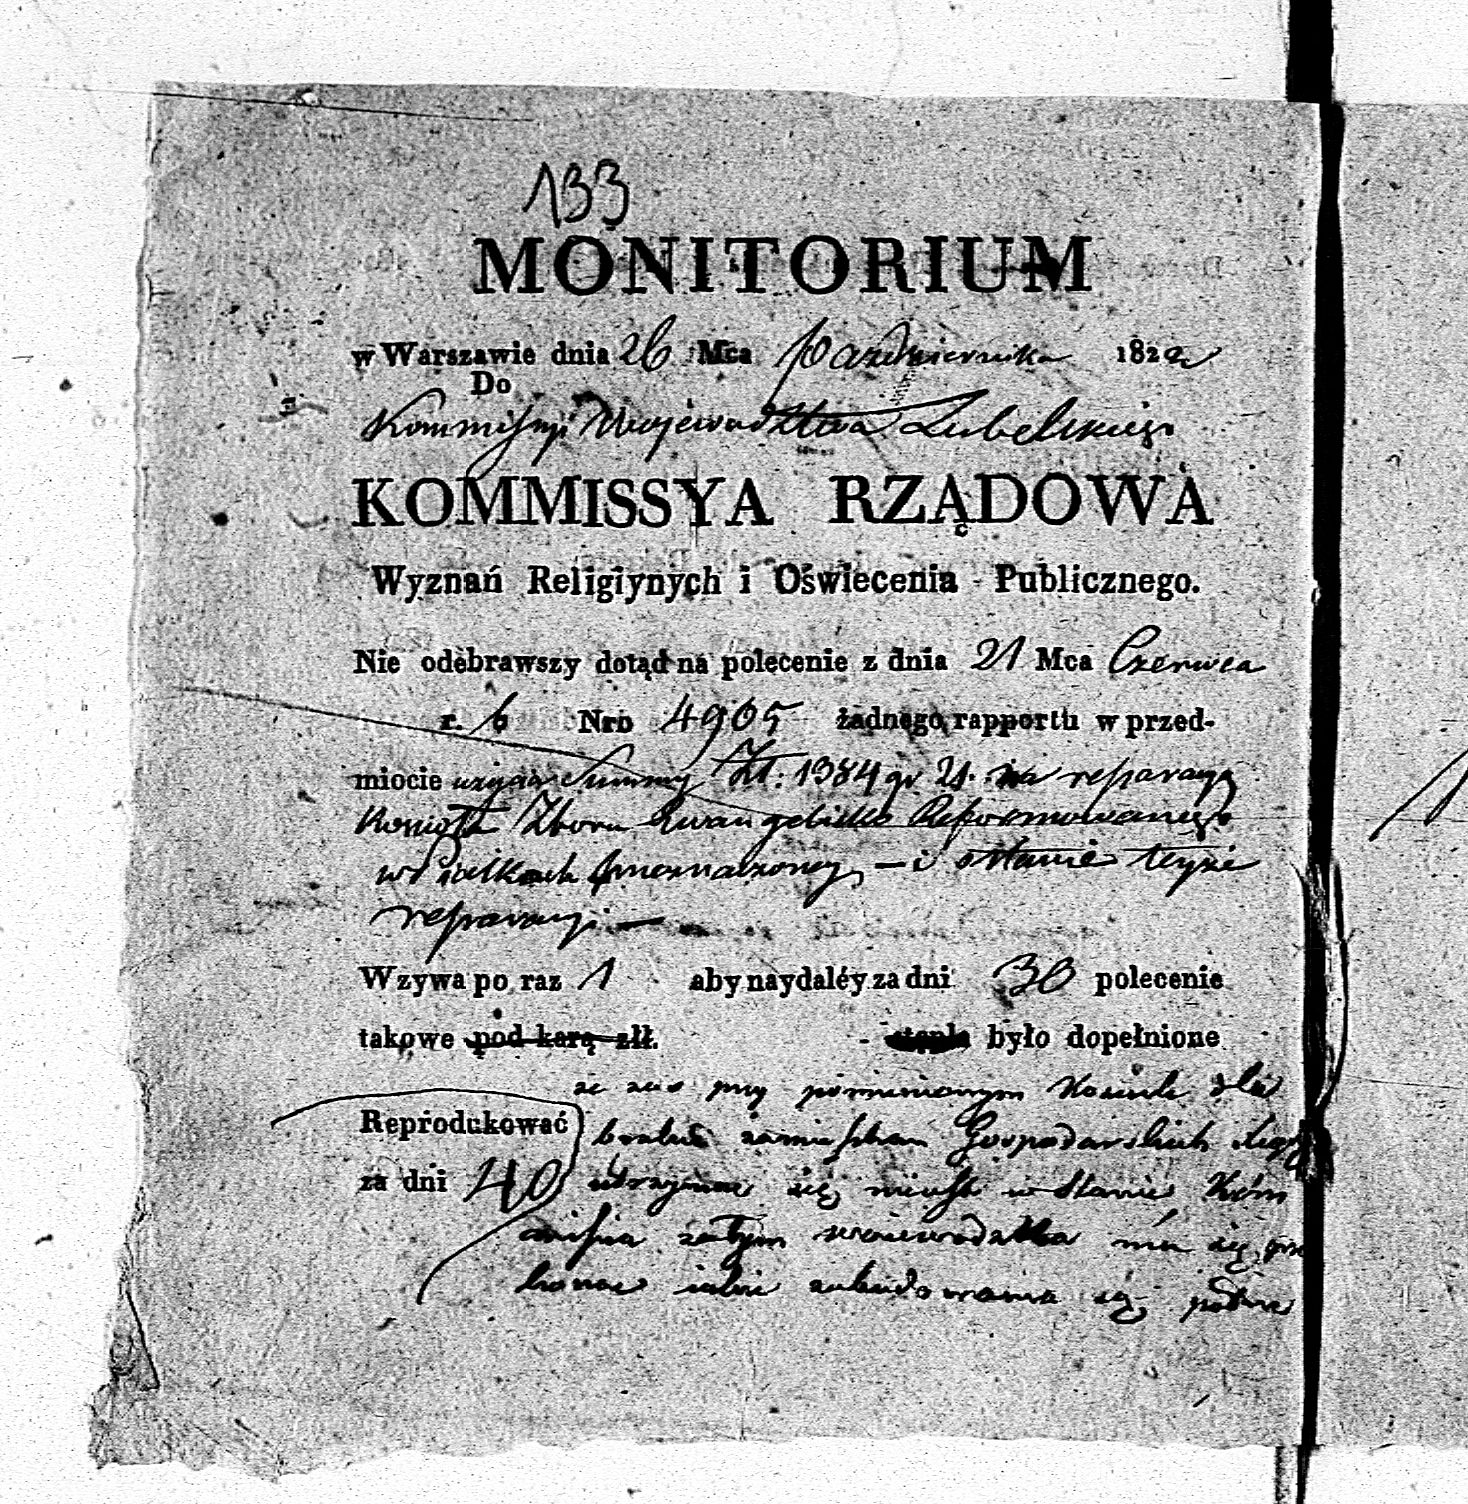 133
MONITORIUM
w Warszawie dnia 26 Mca Października 1822
Do
Kommissyi Województwa Lubelskiego
KOMMISSYA RZĄDOWA
Wyznań Religiynych i Oświecenia Publicznego.
Nie odebrawszy dotąd na polecenie z dnia 21 Mca Czerwca
r. b Nro 4905 żadnego rapportu w przed-
miocie użycia Summy Zł: 1384 gr 21. na reparacyą
Kościoła Zboru Ewangelicko Reformowanego
w Sielcach przeznaczoney, – i o stanie teyże
reparacyi –
Wzywa po raz 1 aby naydaléy za dni 30 polecenie
takowe pod karą złł. było dopełnione
że zaś przy Kościele dla
Reprodukować braku zamieszkań Gospodarskich
za dni 40 utrzymać się w stanie Kom
missia zatym woiewodztka ma się
zabudowania są